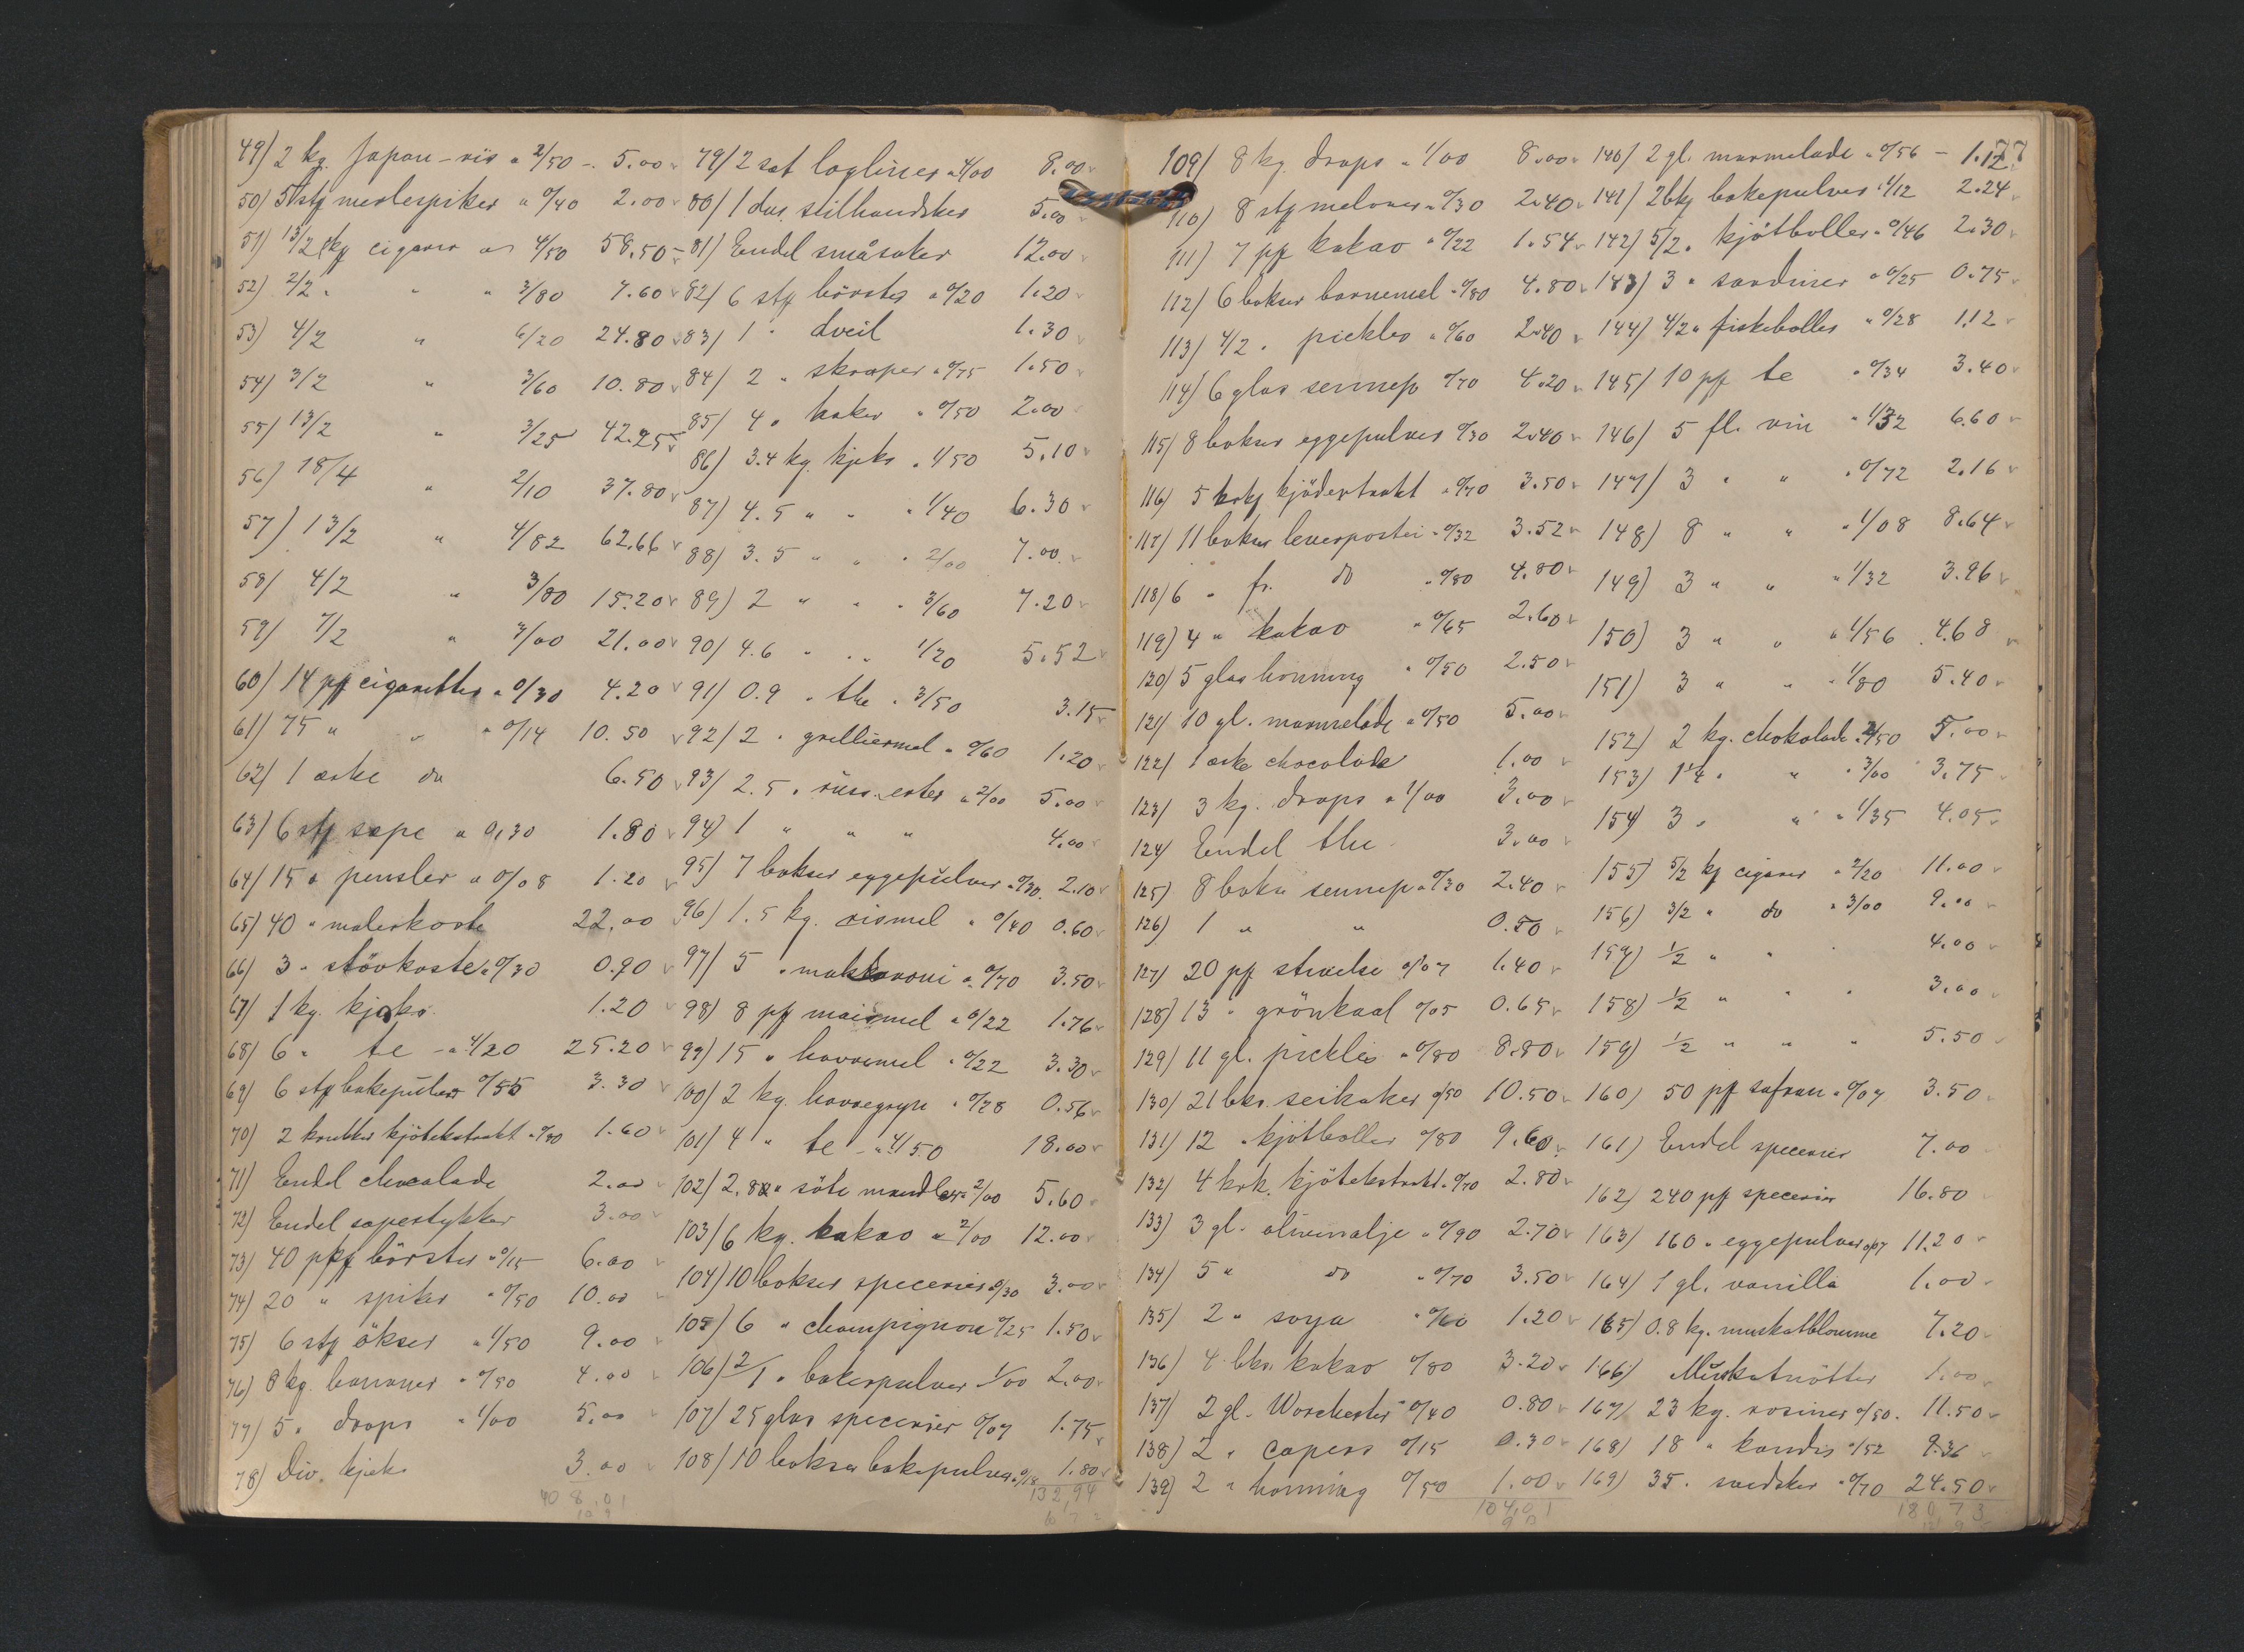 49) 2 kg. Japan-ris a 2/50 - 5.00
50) 5 stk merlespiker a 0/40 2.00
51) 13/2 kg cigarer a 4/50 58.50
52) 2/2 " " " 3/80 7.60
53) 4/2 " 6/20 24.80
54) 3/2 " 3/60 10.80
55) 13/2 " 3/25 42.25
56) 18/4 " 2/10 37.80
57) 13/2 " 4/82 62.66
58) 4/2 " 3/80 15.20
59) 7/2 " 3/00 21.00
60) 14 pk cigaretter a 0/30 4.20
61) 75 " " " 0/14 10.50
62) 1 æske do 6.50
63) 6 stk sape a 0.30 1.80
64) 15 " pensler a 0/08 1.20
65) 40 " malerkoste 22.00
66) 3 " stövkoste a 0/30 0.90
67) 1 kg. kjeks 1.20
68) 6 " te - a 4/20 25.20
69) 6 stk bakepulver 0/55 3.30
70) 2 krukker kjötekstrakt a 0/80 1.60
71) Endel chocolade 2.00
72) Endel sapestykker 3.00
73) 40 pkk börster a 0/15 6.00
74) 20 " spiker a 0/50 10.00
75) 6 stk ökser a 1/50 9.00
76) 8 kg. bananer a 0/50 4.00
77) 5 " drops a 1/00 5.00
78) Div. kjeks 3.00
408.01
79) 2 sæt loglines a 4/00 8.00
80) 1 dus. seilhandsker 5.00
81) Endel småsaker 12.00
82) 6 stk börster a 0/20 1.20
83) 1 " dveil 1.30
84) 2 " skraper a 0/75 1.50
85) 4 " haker a 0/50 2.00
86) 3.4 kg. kjeks a 1/50 5.10
87) 4.5 " " " 1/40 6.30
88) 3.5 " " " 2/00 7.00
89) 2 " " " 3/60 7.20
90) 4.6 " " " 1/20 5.52
91) 0.9 " the " 3/50 3.15
92) 2 " grilliermel a 0/60 1.20
93) 2.5 " russ. erter a 2/00 5.00
94) 1 " " " 4.00
95) 7 bokser eggepulver a 0/30 2.10
96) 1.5 kg. rismel a 0/40 0.60
97) 5 " makkaroni a 0/70 3.50
98) 8 pk maismel a 0/22 1.76
99) 15 " havremel a 0/22 3.30
100) 2 kg. havregryn a 0/28 0.56
101) 4 " te - a 4/50 18.00
102) 2.8 " söte mandler a 2/00 5.60
103) 6 kg. kakao a 2/00 12.00
104) 10 bokser specerier a 0/30 3.00
105) 6 " champignon 0/25 1.50
106) 2/1 " bakepulver 1/00 2.00
107) 25 glas specerier 0/07 1.75
108) 10 bokser bakepulver a 0/18 1.80
132,94
77
109) 8 kg. drops a 1/00 8.00
110) 8 stk meloner a 0/30 2.40
111) 7 pk kakao a 0/22 1.54
112) 6 bokser barnemel a 0/80 4.80
113) 4/2 " pickles a 0/60 2.40
114) 6 glas sennep 0/70 4.20
115) 8 bokser eggepulver 0/30 2.40
116) 5 krkk kjödextrakt a 0/70 3.50
117) 11 bokser leverpostei a 0/32 3.52
118) 6 " fr. do a 0/80 4.80
119) 4 " kakao a 0/65 2.60
120) 5 glas honning a 0/50 2.50
121) 10 gl. marmelade a 0/50 5.00
122) 1 æske chocolade 1.00
123) 3 kg. drops a 1/00 3.00
124) Endel the 3.00
125) 8 bokser sennep a 0/30 2.40
126) 1 " " 0.50
127) 20 pk stivelse 0/07 1.40
128) 13 " grönkaal 0/05 0.65
129) 11 gl. pickles a 0/80 8.80
130) 21 bks. seikaker 0/50 10.50
131) 12 " kjötboller 0/80 9.60
132) 4 krk. kjötekstrakt a 0/70 2.80
133) 3 gl. olivenolje a 0/90 2.70
134) 5 " do a 0/70 3.50
135) 2 " soya a 0/60 1.20
136) 4 bks kakao 0/80 3.20
137) 2 gl. Worchester a 0/40 0.80
138) 2 " capers 0/15 0.30
139) 2 " honning 0/50 1.00
104,01
140) 2 gl. marmelade a 0/56 - 1.12
141) 2 bkj bakepulver 1/12 2.24
142) 5/2 " kjötboller a 0/46 2.30
143) 3 " sardiner a 0/25 0.75
144) 4/2 " fiskeboller a 0/28 1.12
145) 10 pk te a 0/34 3.40
146) 5 fl. vin a 1/32 6.60
147) 3 " " a 0/72 2.16
148) 8 " " a 1/08 8.64
149) 3 " " a 1/32 3.96
150) 3 " " a 1/56 4.68
151) 3 " " a 1/80 5.40
152) 2 kg. chokolade a 2/50 5.00
153) 1 1/4 " " a 3/00 3.75
154) 3 " " a 1/35 4.05
155) 5/2 kg cigarer a 2/20 11.00
156) 3/2 " do a 3/00 9.00
157) 1/2 " " " 4.00
158) 1/2 " " " 3.00
159) 1/2 " " " 5.50
160) 50 pk safran a 0/07 3.50
161) Endel specerier 7.00
162) 240 pk specerier 16.80
163) 160 " eggepulver 0/07 11.20
164) 1 gl. vanilla 1.00
165) 0.8 kg. muskatblomme 7.20
166) Muskatnötter 1.00
167) 23 kg. rosiner 0/50 11.50
168) 18 " kandis 0/52 9.36
169) 35 " svedsker a 0/70 24.50
180,73